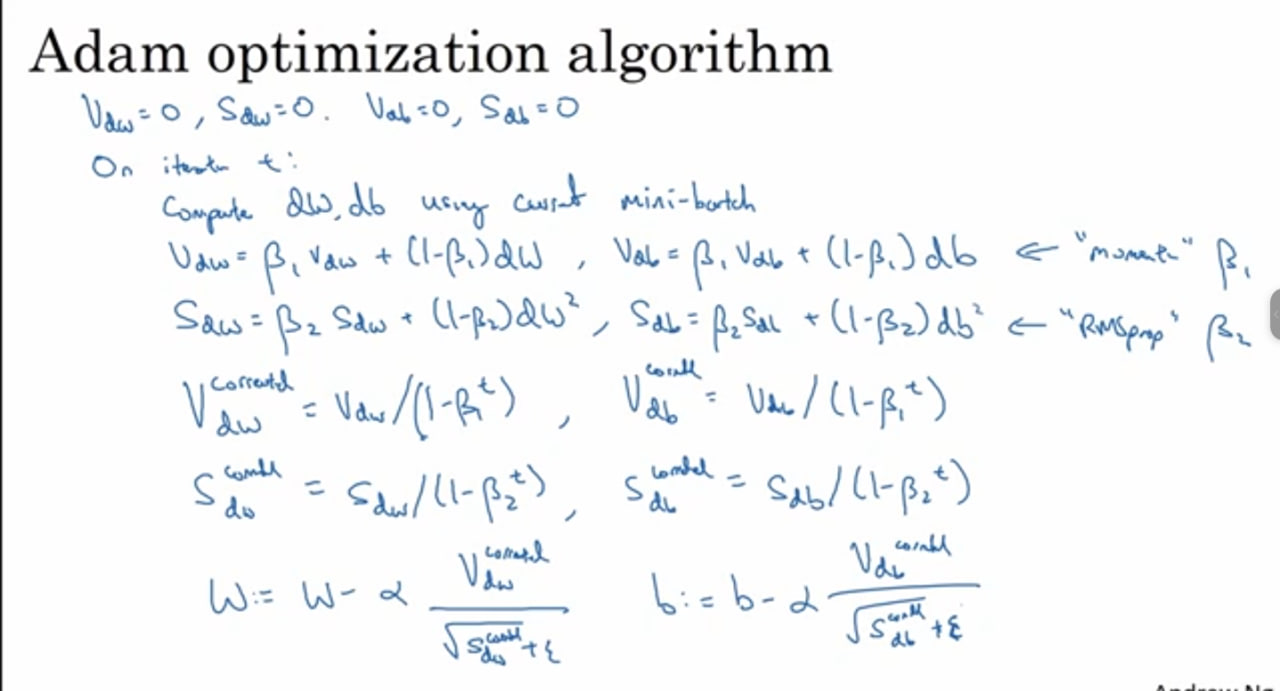 Adam optimization algorithm
V_dw = 0, S_dw = 0. V_db = 0, S_db = 0
On iteration t:
Compute dW, db using current mini-batch
V_dw = β₁ V_dw + (1-β₁) dW , V_db = β₁ V_db + (1-β₁) db ← "moment" β₁
S_dw = β₂ S_dw + (1-β₂) dW² , S_db = β₂ S_db + (1-β₂) db² ← "RMSprop" β₂
V_dw^corrected = V_dw / (1-β₁^t) , V_db^corrected = V_db / (1-β₁^t)
S_dw^corrected = S_dw / (1-β₂^t) , S_db^corrected = S_db / (1-β₂^t)
W := W - α V_dw^corrected / (√S_dw^corrected + ε) b := b - α V_db^corrected / (√S_db^corrected + ε)
Andrew Ng